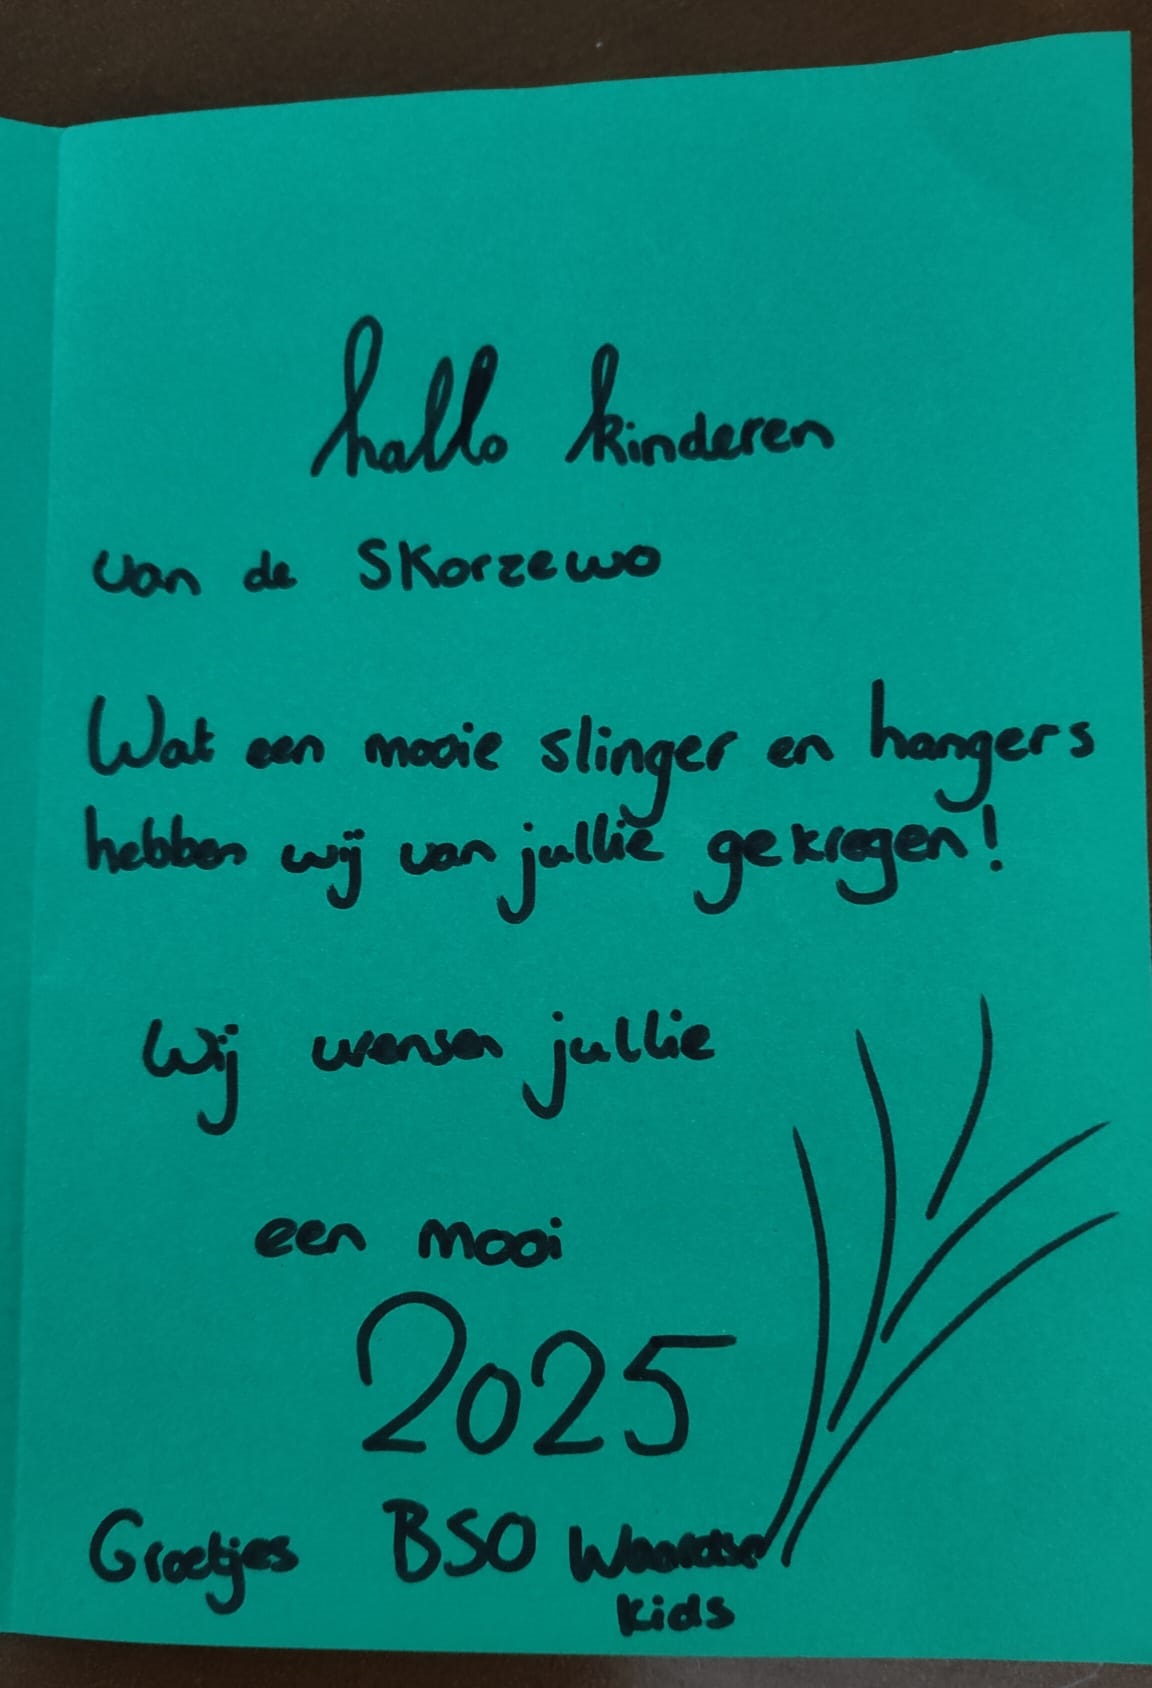 hallo kinderen
van de Skorzewo
Wat een mooie slinger en hangers
hebben wij van jullie gekregen!
Wij wensen jullie
een mooi
2025
Groetjes BSO Waardse
kids